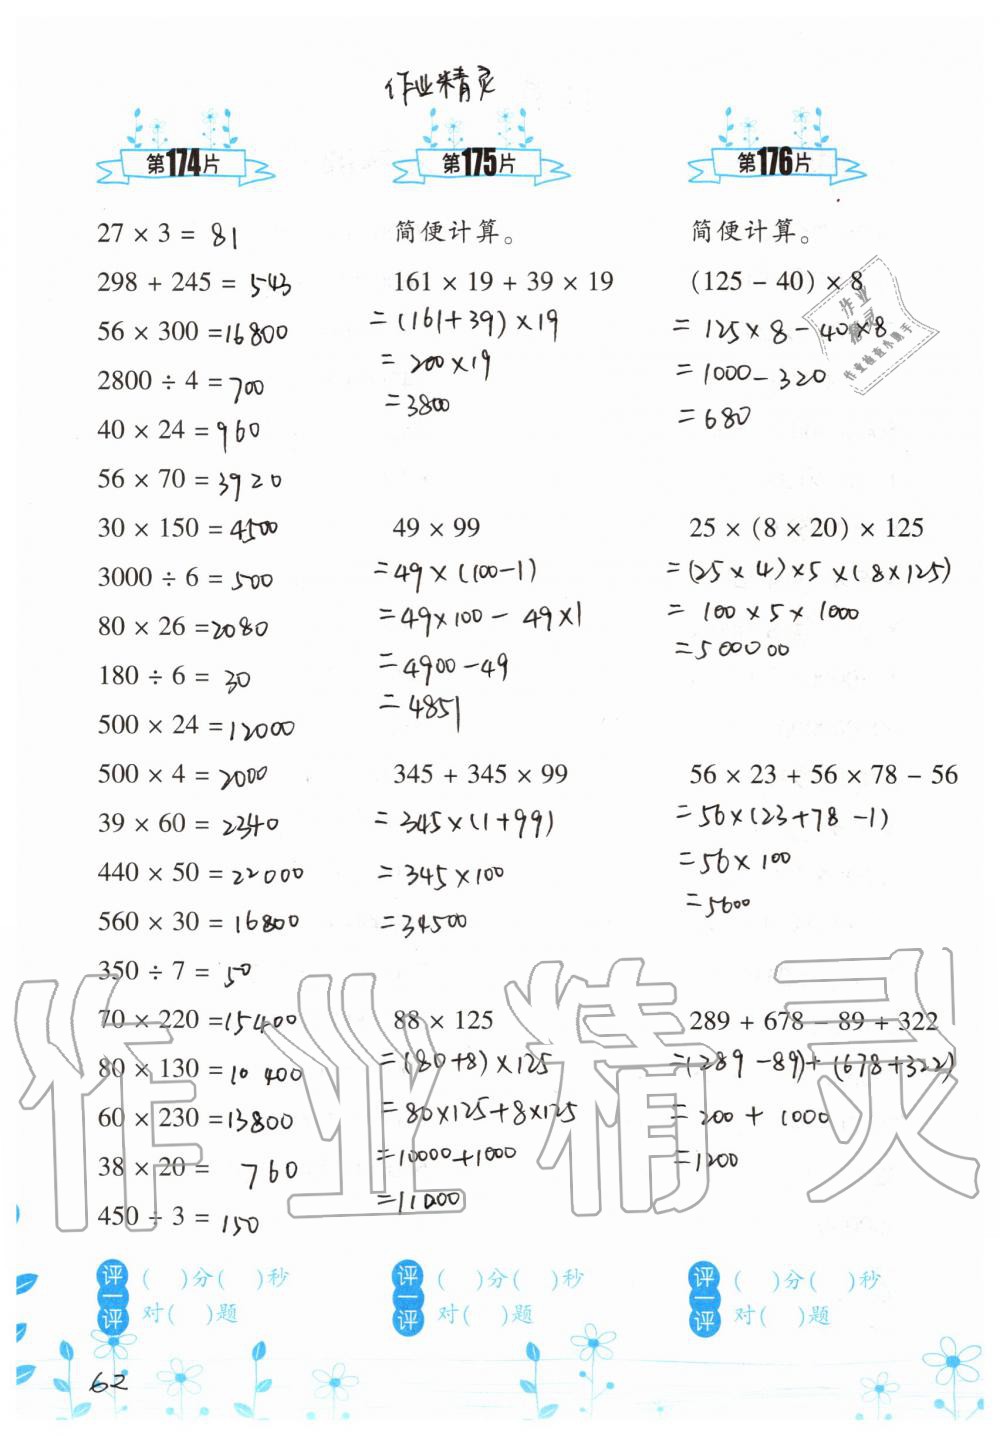 作业精灵
第174片
27 × 3 = 81
298 + 245 = 543
56 × 300 = 16800
2800 ÷ 4 = 700
40 × 24 = 960
56 × 70 = 3920
30 × 150 = 4500
3000 ÷ 6 = 500
80 × 26 = 2080
180 ÷ 6 = 30
500 × 24 = 12000
500 × 4 = 2000
39 × 60 = 2340
440 × 50 = 22000
560 × 30 = 16800
350 ÷ 7 = 50
70 × 220 = 15400
80 × 130 = 10400
60 × 230 = 13800
38 × 20 = 760
450 ÷ 3 = 150
评一评
( )分( )秒
对( )题
第175片
简便计算。
161 × 19 + 39 × 19
= (161+39) × 19
= 200 × 19
= 3800
49 × 99
= 49 × (100-1)
= 49×100 - 49×1
= 4900-49
= 4851
345 + 345 × 99
= 345×(1+99)
= 345×100
= 34500
88 × 125
= (80+8)×125
= 80×125+8×125
= 10000+1000
= 11000
评一评
( )分( )秒
对( )题
第176片
简便计算。
(125 - 40) × 8
= 125×8-40×8
= 1000-320
= 680
25 × (8 × 20) × 125
= (25×4)×5×(8×125)
= 100×5×1000
= 500000
56 × 23 + 56 × 78 - 56
= 56×(23+78-1)
= 56×100
= 5600
289 + 678 - 89 + 322
= (289-89)+(678+322)
= 200 + 1000
= 1200
评一评
( )分( )秒
对( )题
作业
精灵
作业检查小助手
作业精灵
62